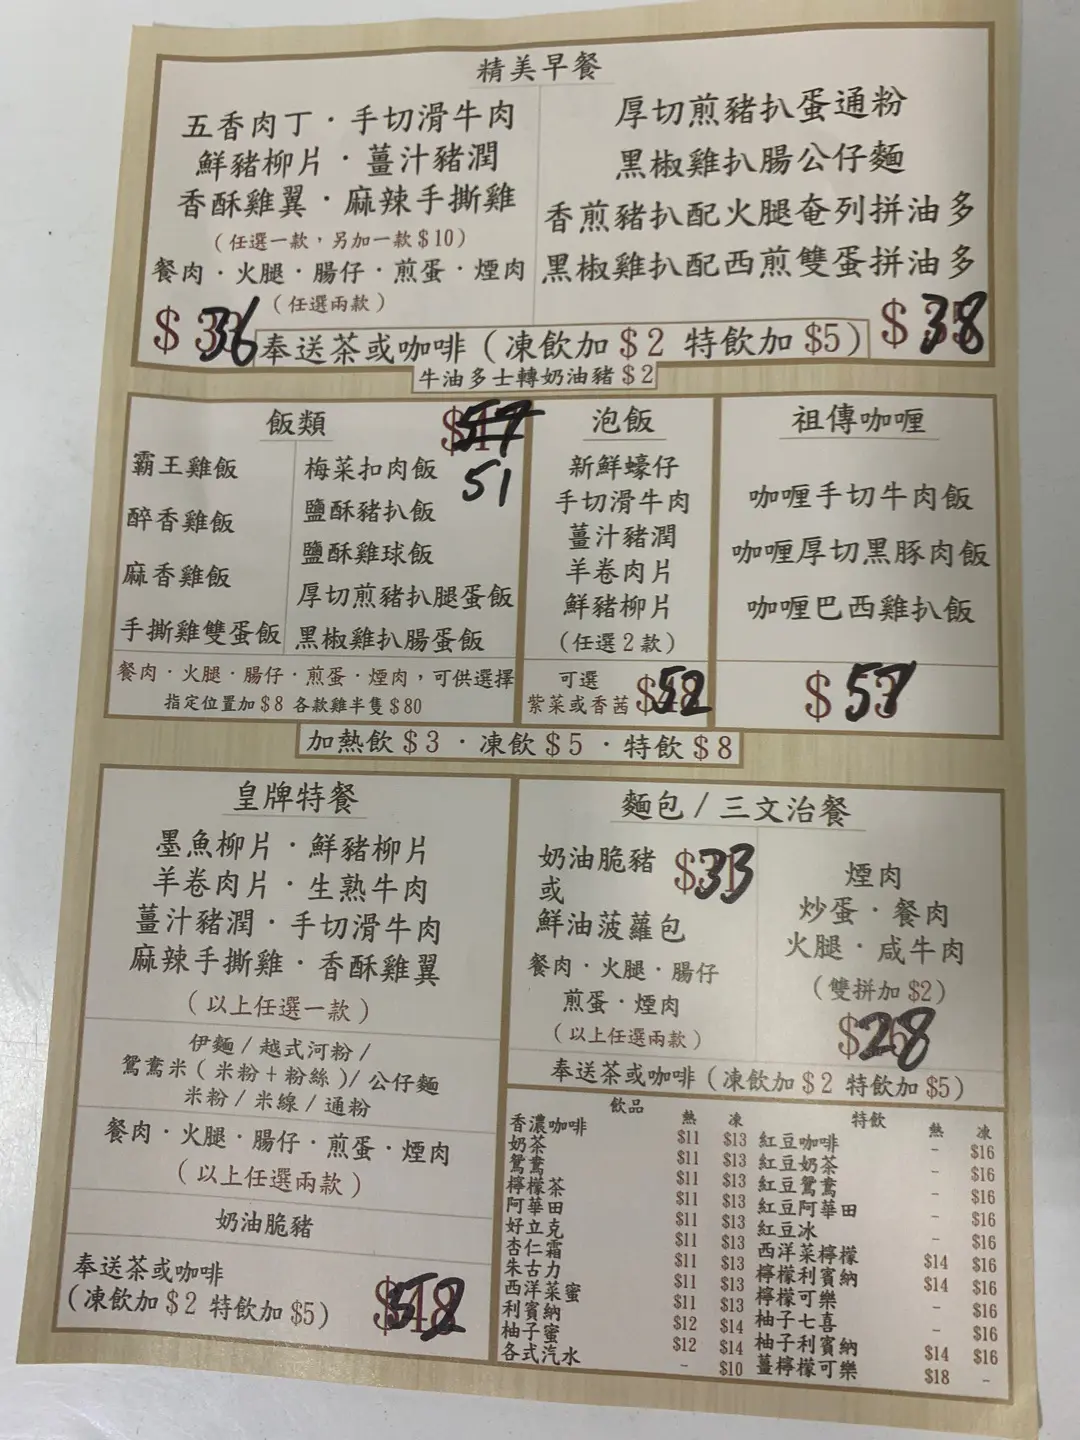 精美早餐
五香肉丁·手切滑牛肉
鮮豬柳片·薑汁豬潤
香酥雞翼·麻辣手撕雞
(任選一款,另加一款$10)
餐肉·火腿·腸仔·煎蛋·煙肉
(任選兩款)
$36
厚切煎豬扒蛋通粉
黑椒雞扒腸公仔麵
香煎豬扒配火腿奄列拼油多
黑椒雞扒配西煎雙蛋拼油多
$38
奉送茶或咖啡(凍飲加$2 特飲加$5)
牛油多士轉奶油豬$2
飯類
51
霸王雞飯
醉香雞飯
麻香雞飯
手撕雞雙蛋飯
梅菜扣肉飯
鹽酥豬扒飯
鹽酥雞球飯
厚切煎豬扒腿蛋飯
黑椒雞扒腸蛋飯
餐肉·火腿·腸仔·煎蛋·煙肉,可供選擇
指定位置加$8 各款雞半隻$80
泡飯
新鮮蠔仔
手切滑牛肉
薑汁豬潤
羊卷肉片
鮮豬柳片
(任選2款)
可選
紫菜或香茜 $52
祖傳咖喱
咖喱手切牛肉飯
咖喱厚切黑豚肉飯
咖喱巴西雞扒飯
$57
加熱飲$3·凍飲$5·特飲$8
皇牌特餐
墨魚柳片·鮮豬柳片
羊卷肉片·生熟牛肉
薑汁豬潤·手切滑牛肉
麻辣手撕雞·香酥雞翼
(以上任選一款)
伊麵/越式河粉/
鴛鴦米(米粉+粉絲)/公仔麵
米粉/米線/通粉
餐肉·火腿·腸仔·煎蛋·煙肉
(以上任選兩款)
奶油脆豬
奉送茶或咖啡
(凍飲加$2 特飲加$5)
$52
麵包/三文治餐
奶油脆豬 $33
或
鮮油菠蘿包
餐肉·火腿·腸仔
煎蛋·煙肉
(以上任選兩款)
煙肉
炒蛋·餐肉
火腿·咸牛肉
(雙拼加$2)
$28
奉送茶或咖啡(凍飲加$2 特飲加$5)
飲品 熱 凍
香濃咖啡 $11 $13
奶茶 $11 $13
鴛鴦 $11 $13
檸檬茶 $11 $13
阿華田 $11 $13
好立克 $11 $13
杏仁霜 $11 $13
朱古力 $11 $13
西洋菜蜜 $11 $13
利賓納 $12 $14
柚子蜜 $12 $14
各式汽水 - $10
特飲 熱 凍
紅豆咖啡 - $16
紅豆奶茶 - $16
紅豆鴛鴦 - $16
紅豆阿華田 - $16
紅豆冰 - $16
西洋菜檸檬 $14 $16
檸檬利賓納 $14 $16
檸檬可樂 - $16
柚子七喜 - $16
柚子利賓納 $14 $16
薑檸檬可樂 $18 -